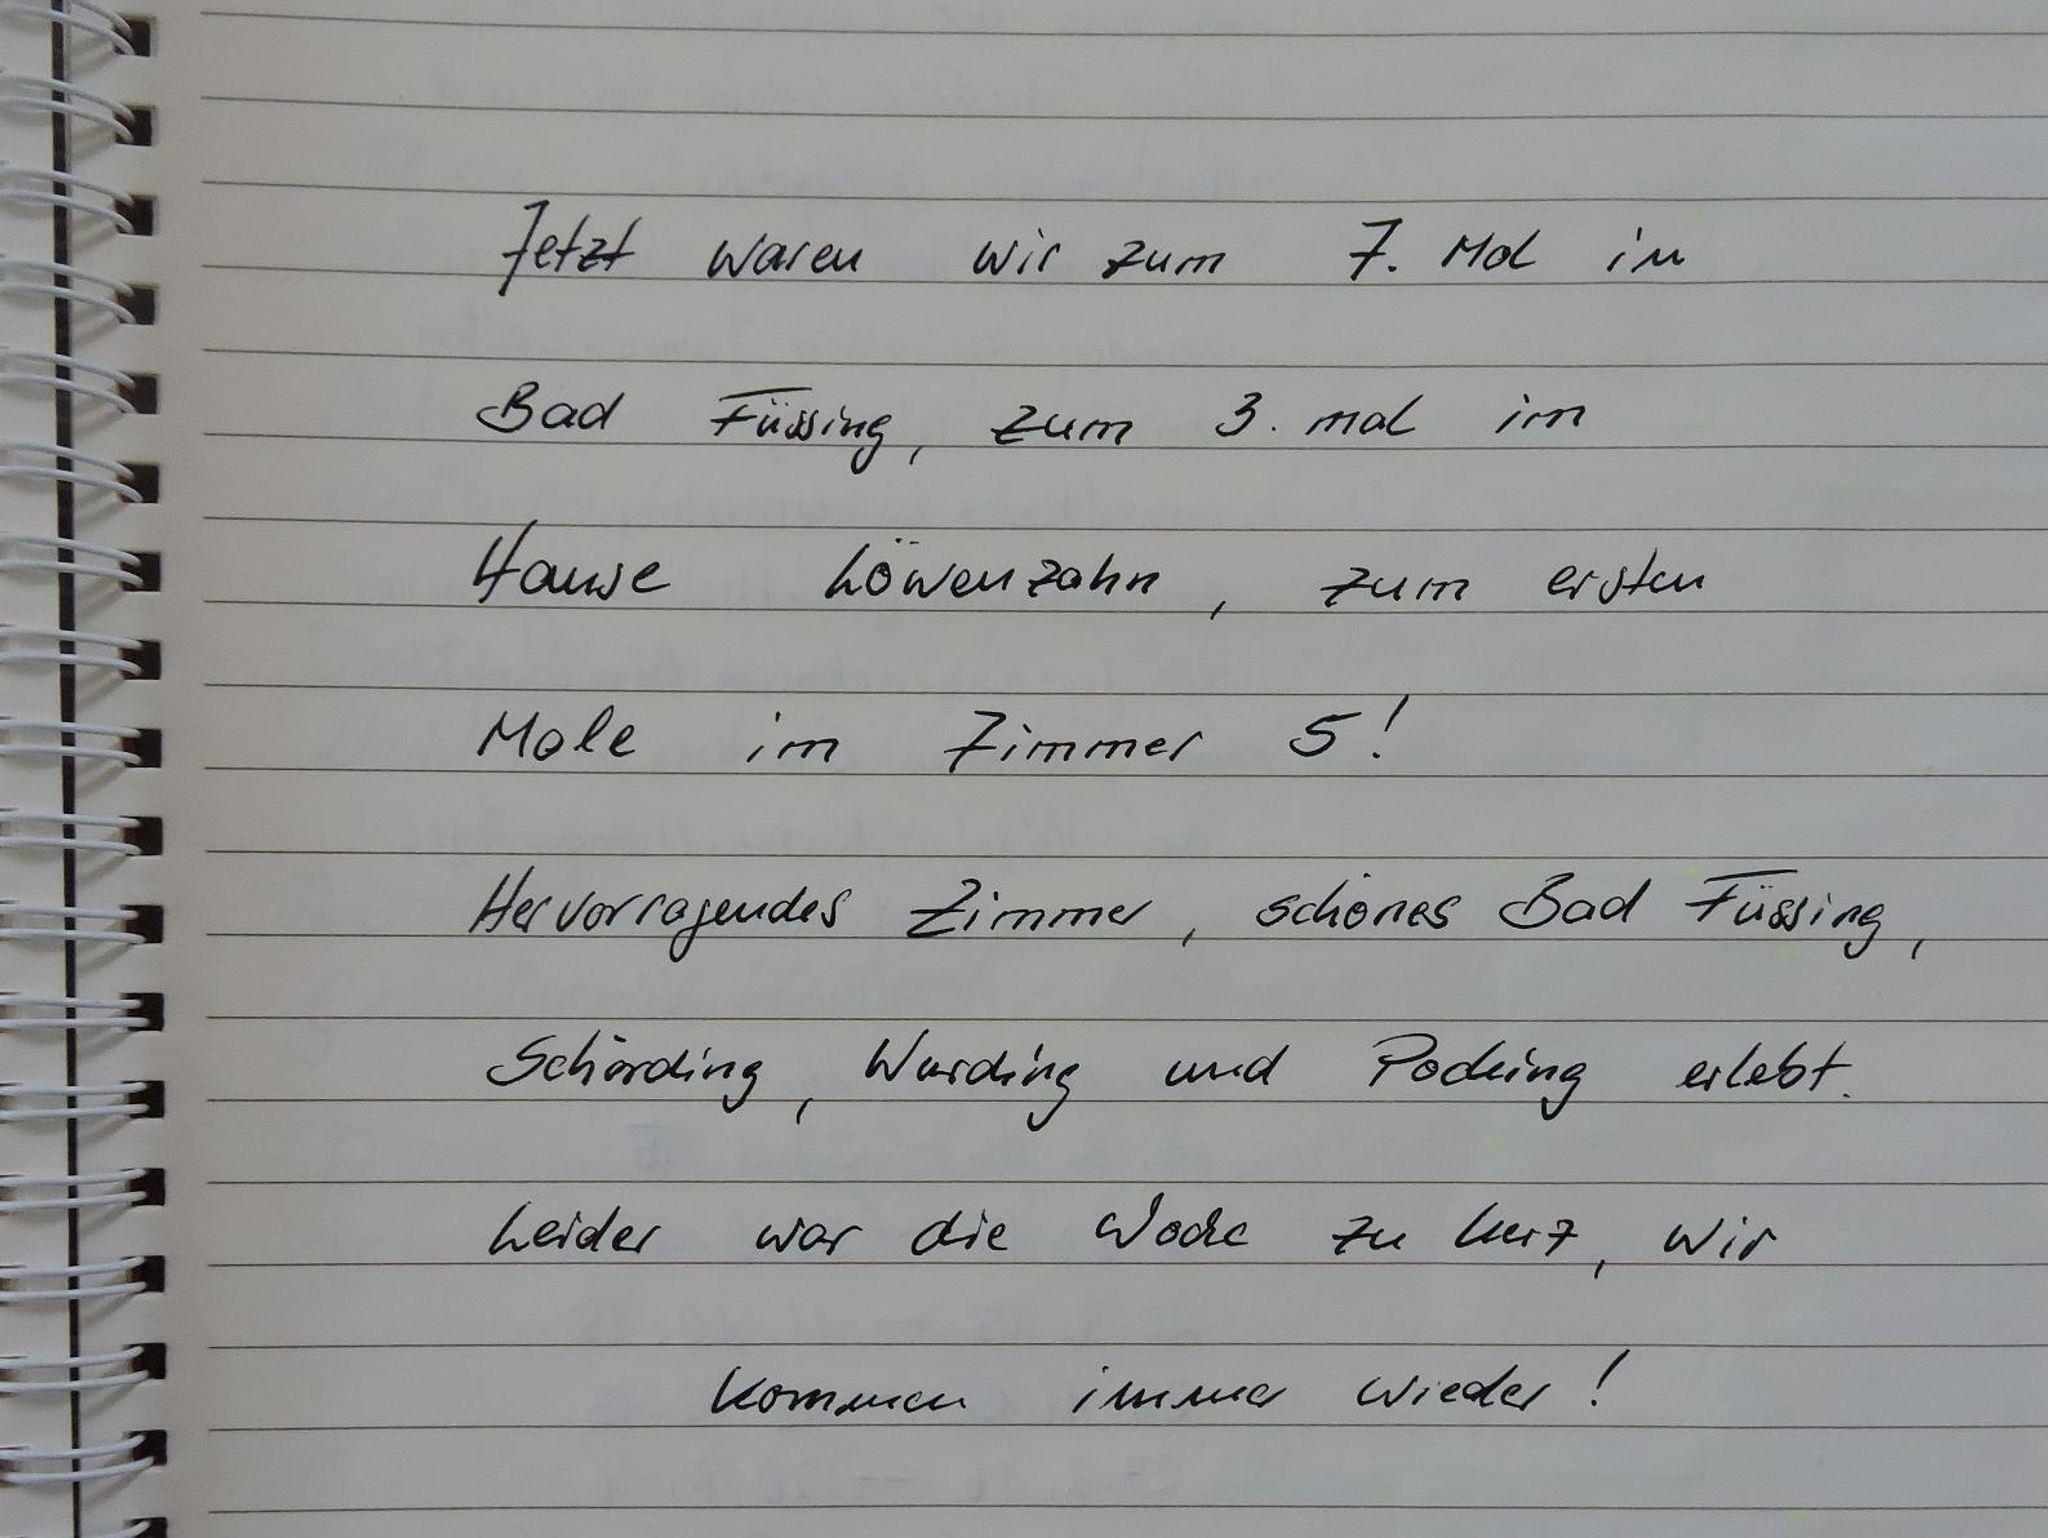 Jetzt waren wir zum 7. Mal in
Bad Füssing, zum 3. mal im
Hause Löwenzahn, zum ersten
Male im Zimmer 5!
Hervorragendes Zimmer, schönes Bad Füssing,
Schärding, Würding und Pocking erlebt.
Leider war die Woche zu kurz, wir
kommen immer wieder!